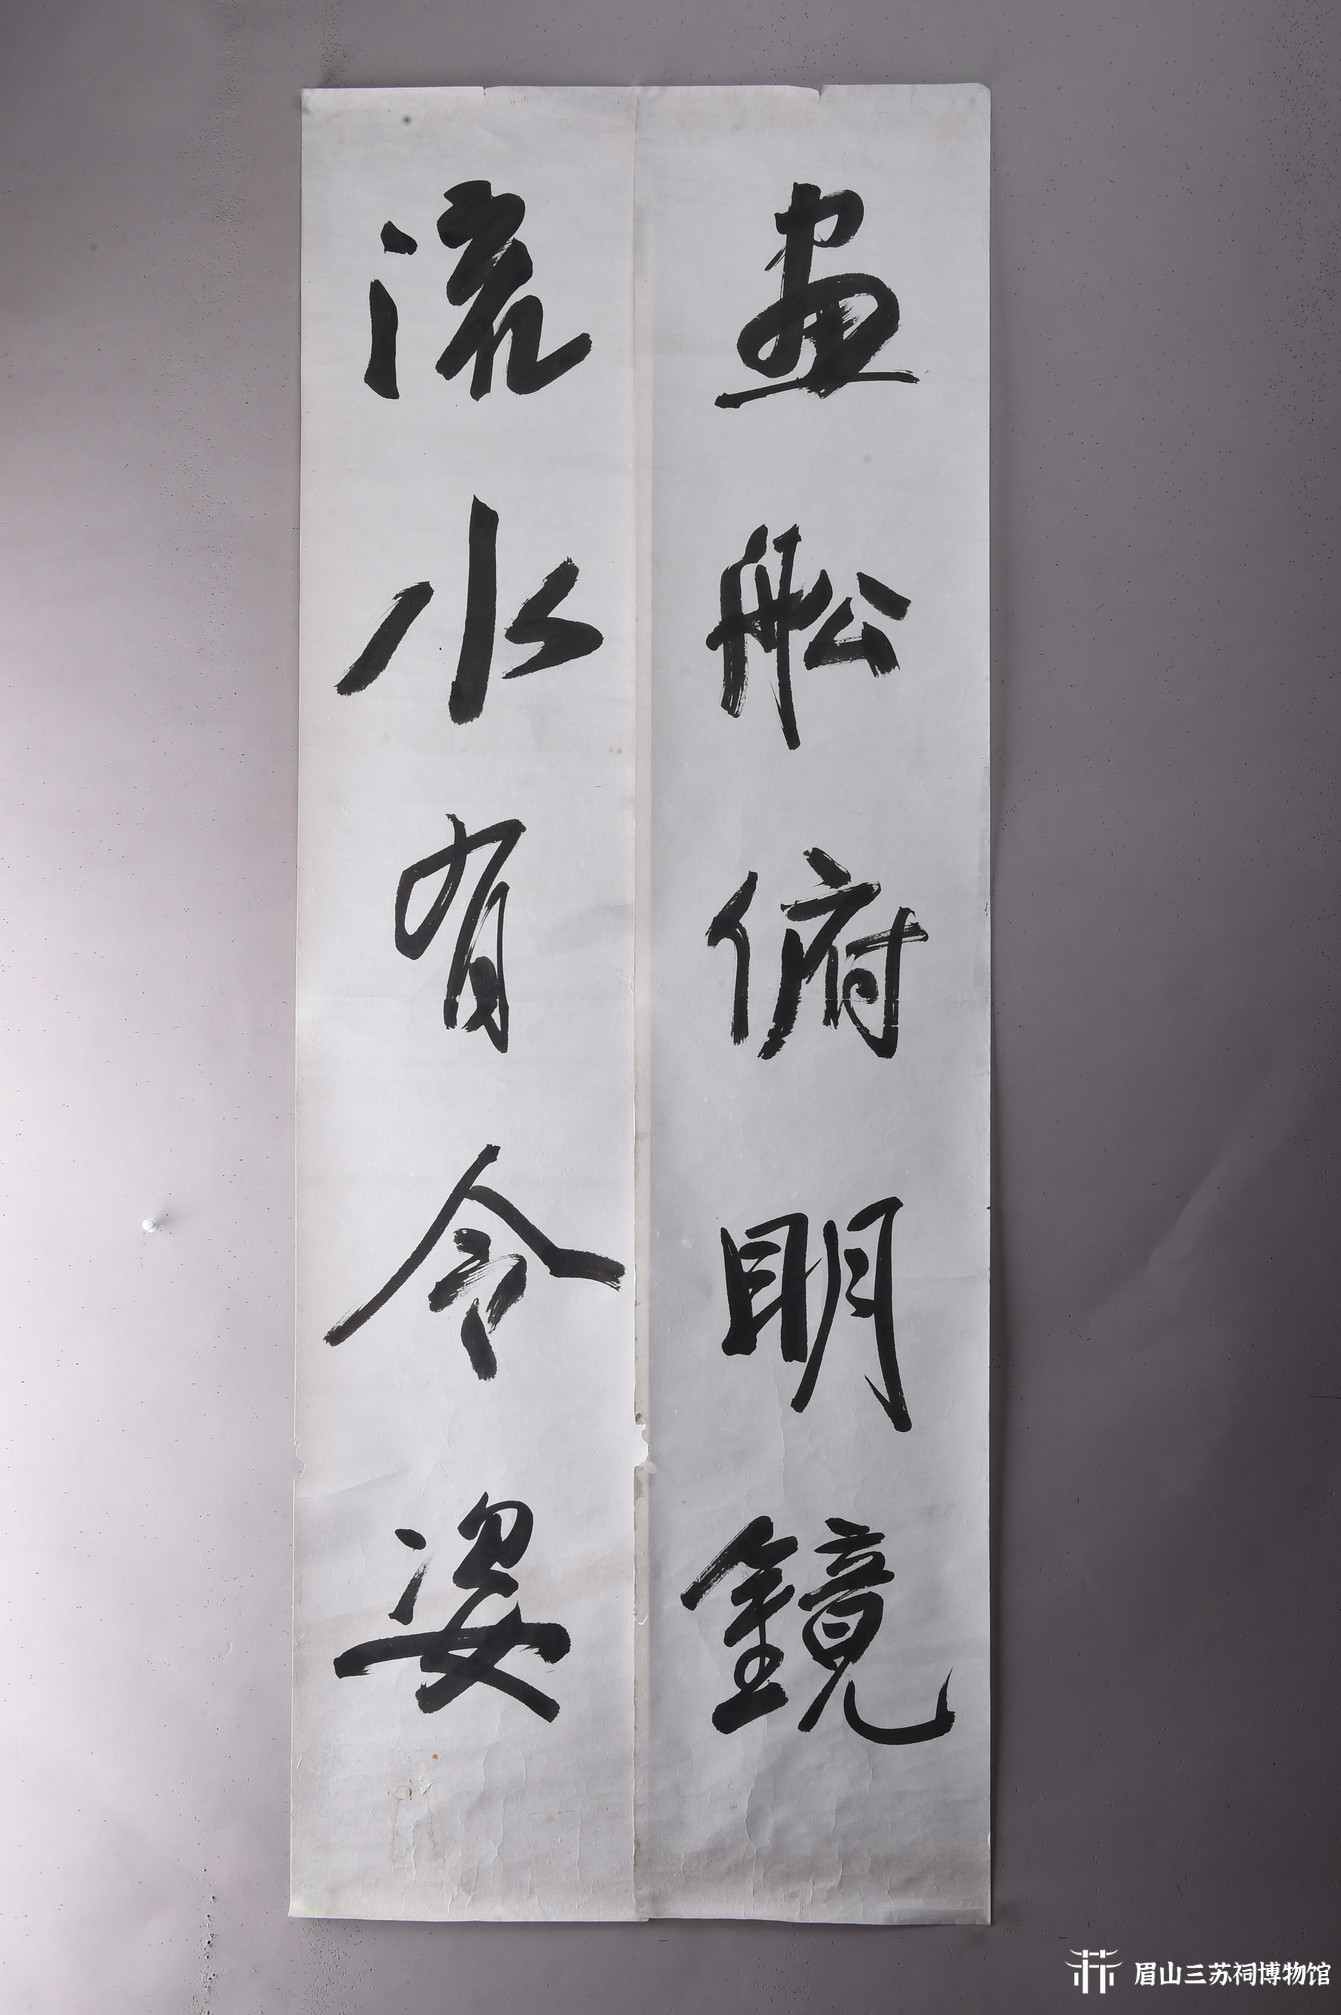 画舩俯明鏡
流水有令姿
眉山三苏祠博物馆